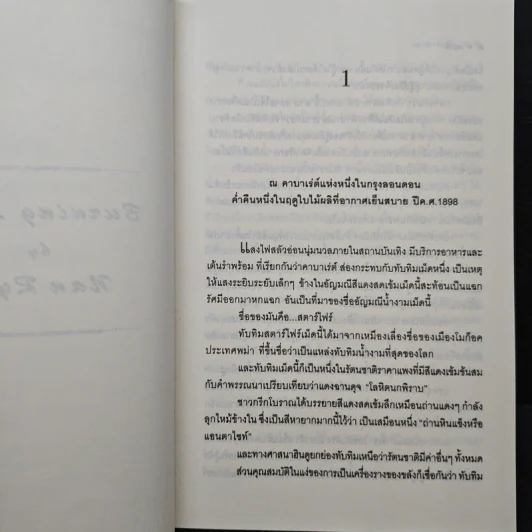 1
ณ คาบาเร่ต์แห่งหนึ่งในกรุงลอนดอน
ค่ำคืนหนึ่งในฤดูใบไม้ผลิที่อากาศเย็นสบาย ปีค.ศ.1898
แสงไฟสลัวอ่อนนุ่มนวลภายในสถานบันเทิง มีบริการอาหารและ
เต้นรำพร้อม ที่เรียกกันว่าคาบาเร่ต์ ส่องกระทบกับทับทิมเม็ดหนึ่ง เป็นเหตุ
ให้แสงระยิบระยับเล็กๆ ข้างในอัญมณีสีแดงสดเข้มเม็ดนี้สะท้อนเป็นแฉก
รัศมีออกมาหกแฉก อันเป็นที่มาของชื่ออัญมณีน้ำงามเม็ดนี้
ชื่อของมันคือ...สตาร์ไฟร์
ทับทิมสตาร์ไฟร์เม็ดนี้ได้มาจากเหมืองเลื่องชื่อของเมืองโมก็อค
ประเทศพม่า ที่ขึ้นชื่อว่าเป็นแหล่งทับทิมน้ำงามที่สุดของโลก
และทับทิมเม็ดนี้ก็เป็นหนึ่งในรัตนชาติราคาแพงที่มีสีแดงเข้มข้นสม
กับคำพรรณนาเปรียบเทียบว่าแดงฉานดุจ "โลหิตนกพิราบ"
ชาวกรีกโบราณได้บรรยายสีแดงสดเข้มลึกเหมือนถ่านแดงๆ กำลัง
ลุกไหม้ข้างใน ซึ่งเป็นสีหายากมากนี้ไว้ว่า เป็นเสมือนหนึ่ง "ถ่านหินแข็งหรือ
แอนตาไซท์"
และทางศาสนาฮินดูยกย่องทับทิมเหนือว่ารัตนชาติมีค่าอื่นๆ ทั้งหมด
ส่วนคุณสมบัติในแง่ของการเป็นเครื่องรางของขลังก็เชื่อกันว่า ทับทิม